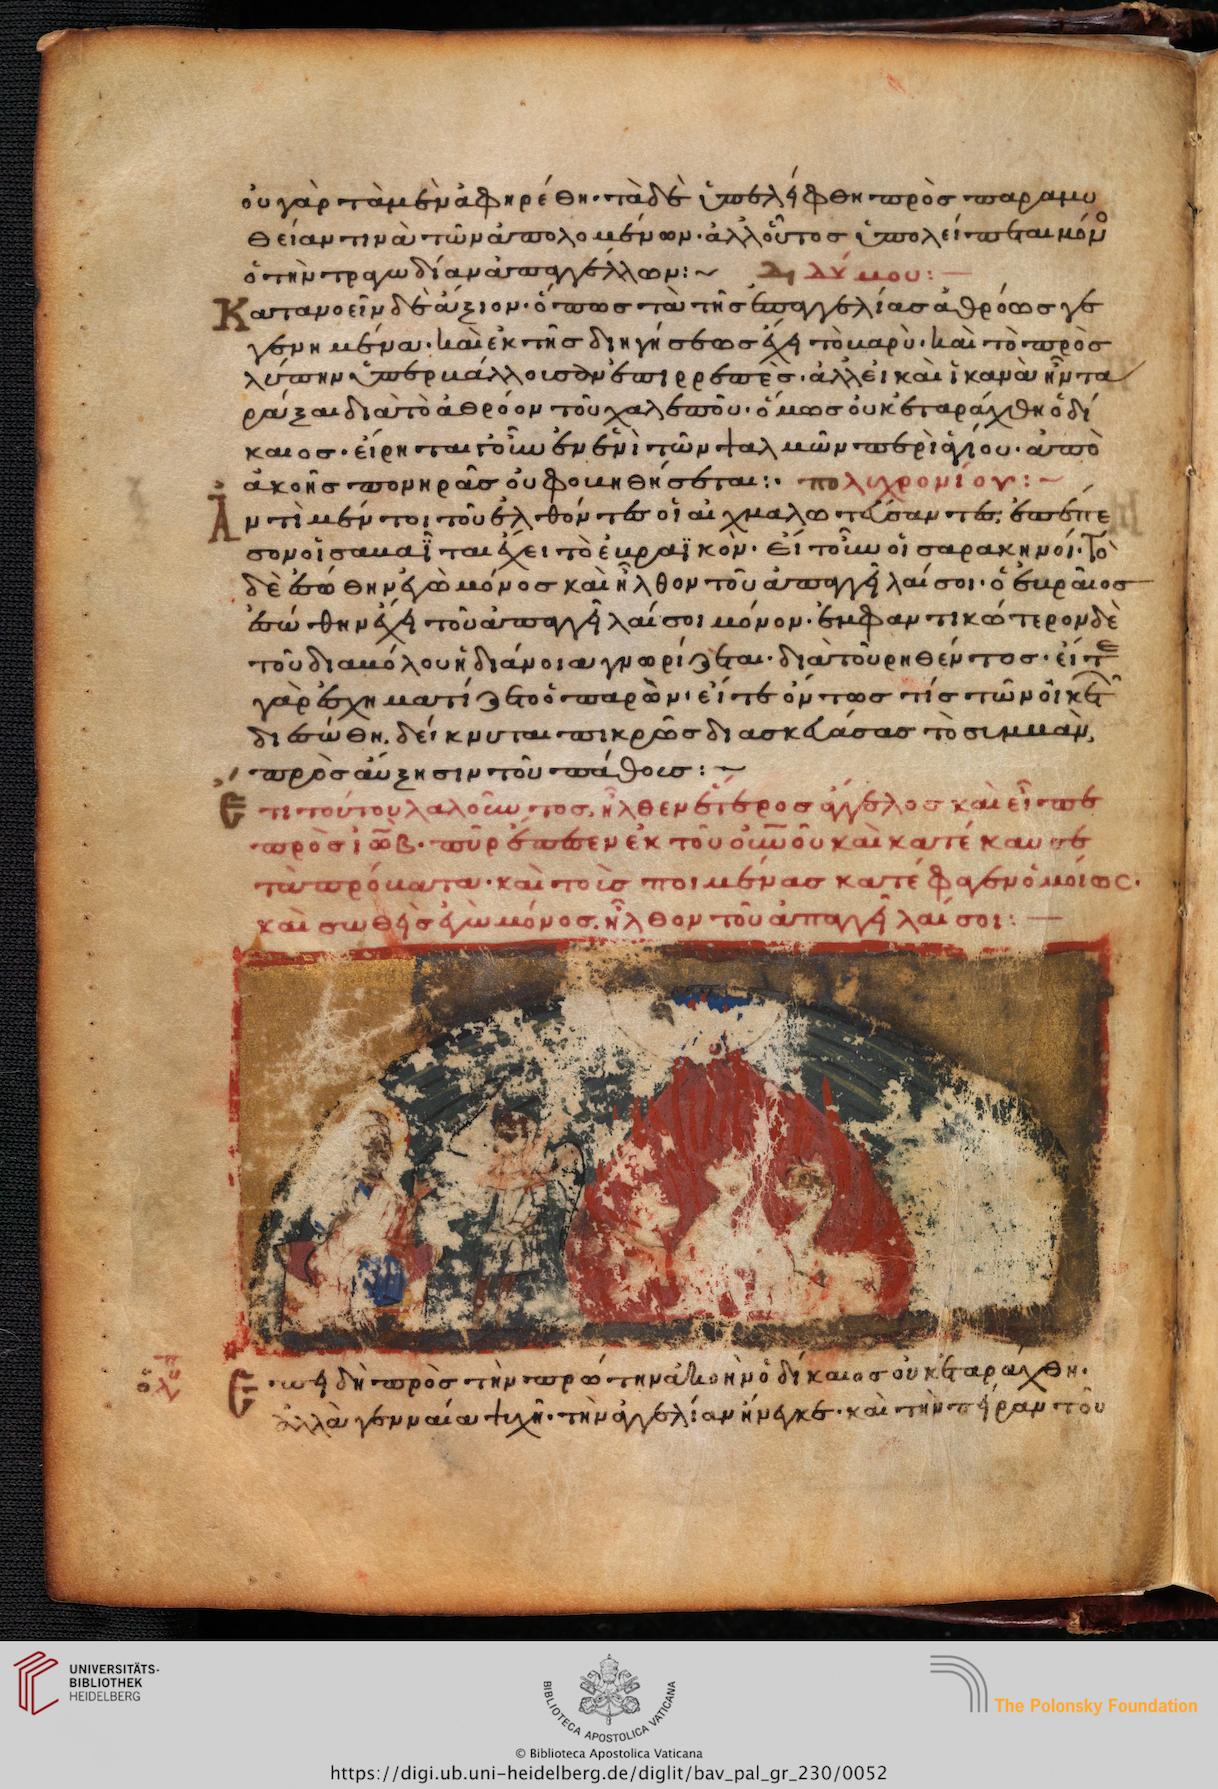 οὐ γὰρ τὰ μὲν ἀφηρέθη· τὰ δὲ ὑπελήφθη πρὸς παραμυ
θείαν τινὰ τῶν ἀπολομένων· ἀλλ' οὗτος ὑπολείπεται μόν
ὁ τὴν τραγωδίαν ἀπαγγέλλων: ~ Διδύμου: —
Κατανοεῖν δὲ ἄξιον· ὅπως τὰ τῆς ἐπαγγελίας ἀθρόως γε
γενημένα· καὶ ἐκ τῆς διηγήσεως ἔχη τὸ βαρὺ· καὶ τὸ πρὸς
λύπην ὑπερβάλλουσαν ἐπιρρεπὲς· ἀλλ' εἰ καὶ ἱκανὰ ἦν τα
ράξαι διὰ τὸ ἀθρόον τοῦ χαλεποῦ· ὅμως οὐκ ἐταράχθη ὁ δί
καιος· εἴρηται τοίνυν ἐν ἑνὶ τῶν ψαλμῶν περὶ ἁγίου· ἀπὸ
ἀκοῆς πονηρᾶς οὐ φοβηθήσεται: · πολυχρονίου: ~
Ἀντὶ μέντοι τοῦ ἐλθόντες οἱ αἰχμαλωτεύσαντες, ἐπέπε
σον οἱ σαβαῖται ἔχει τὸ ἑβραϊκὸν· εἰ τοίνυν οἱ σαρακηνοί· Τὸ
δὲ ἐσώθην ἐγὼ μόνος καὶ ἦλθον τοῦ ἀπαγγεῖλαί σοι· ὁ ἑβραῖος
ἐσώθην ἔχει τοῦ ἀπαγγεῖλαί σοι μόνον· ἐμφαντικώτερον δὲ
τοῦ διαβόλου ἡ διάνοια γνωρίζεται· διὰ τοῦ ῥηθέντος· εἴτε
γὰρ ἐσχηματίζετο ὁ παρὼν· εἴτε ὄντως τίς τῶν οἰκετῶν
διεσώθη, δείκνυται πικρῶς διασκευάσας τὸ συμβὰν,
πρὸς αὔξησιν τοῦ πάθους: ~
Ἔτι τούτου λαλοῦντος, ἦλθεν ἕτερος ἄγγελος καὶ εἶπε
πρὸς ἰώβ· πῦρ ἔπεσεν ἐκ τοῦ οὐνοῦ καὶ κατέκαυσε
τὰ πρόβατα· καὶ τοὺς ποιμένας κατέφαγεν ὁμοίως·
καὶ σωθεὶς ἐγὼ μόνος, ἦλθον τοῦ ἀπαγγεῖλαί σοι: —
Ἐπειδὴ πρὸς τὴν πρώτην ἀκοὴν ὁ δίκαιος οὐκ ἐταράχθη·
ἀλλὰ γενναία ψυχῆ· τὴν ἀγγελίαν ἤνεγκε· καὶ τὴν πεῖραν τοῦ
UNIVERSITÄTS-
BIBLIOTHEK
HEIDELBERG
BIBLIOTECA APOSTOLICA VATICANA
The Polonsky Foundation
© Biblioteca Apostolica Vaticana
https://digi.ub.uni-heidelberg.de/diglit/bav_pal_gr_230/0052